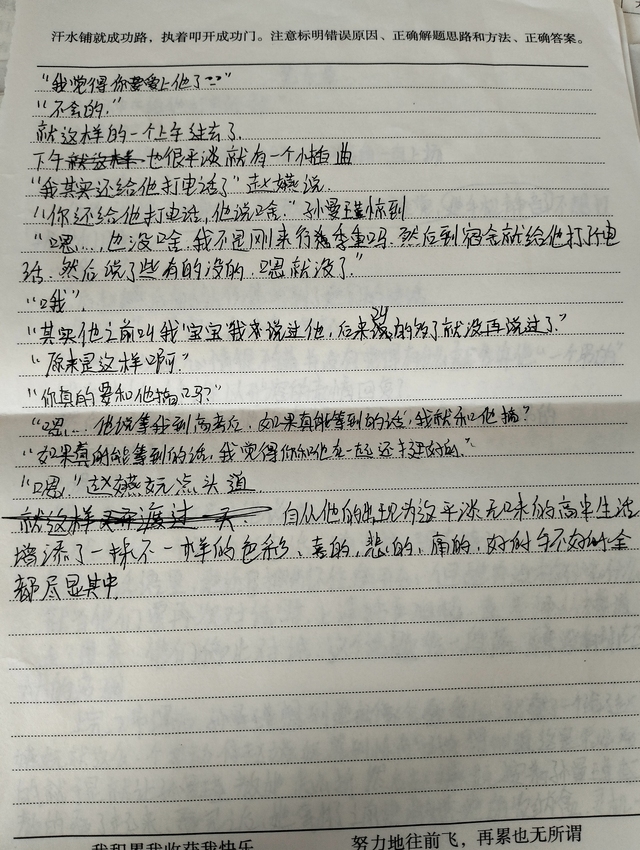 汗水铺就成功路，执着叩开成功门。注意标明错误原因、正确解题思路和方法、正确答案。
“我觉得你要爱上他了”
“不会的.”
就这样的一个上午过去了.
下午也很平淡就有一个小插曲
“我其实还给他打电话了”赵嬿说.
“你还给他打电话,他说啥.”孙曼惊到
“嗯...,也没啥.我不是刚来行李重吗.然后到宿舍就给他打电
话.然后说了些有的没的.嗯就没了.”
“哦”.
“其实他之前叫我‘宝宝’我说过他,后来的就没再说过了.”
“原来是这样啊.”
“你真的要和他搞吗?”
“嗯...他说等我到高考后.如果真能等到的话,我就和他搞?
“如果真的能等到的话,我觉得你和他在一起还挺好的.”
“嗯.”赵嬿点头道
就这样 渡过一天. 自从他的出现为这平淡无味的高中生活
增添了一抹不一样的色彩、喜的,悲的,痛的,好的与不好的全
都尽显其中.
我积累我收获我快乐
努力地往前飞，再累也无所谓